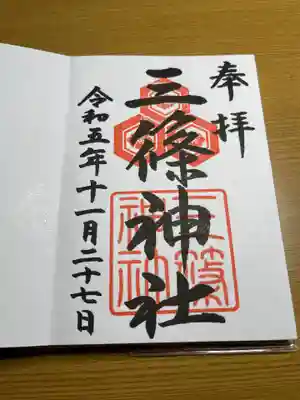 奉拝
三篠神社
令和五年十一月二十七日
三篠
神社